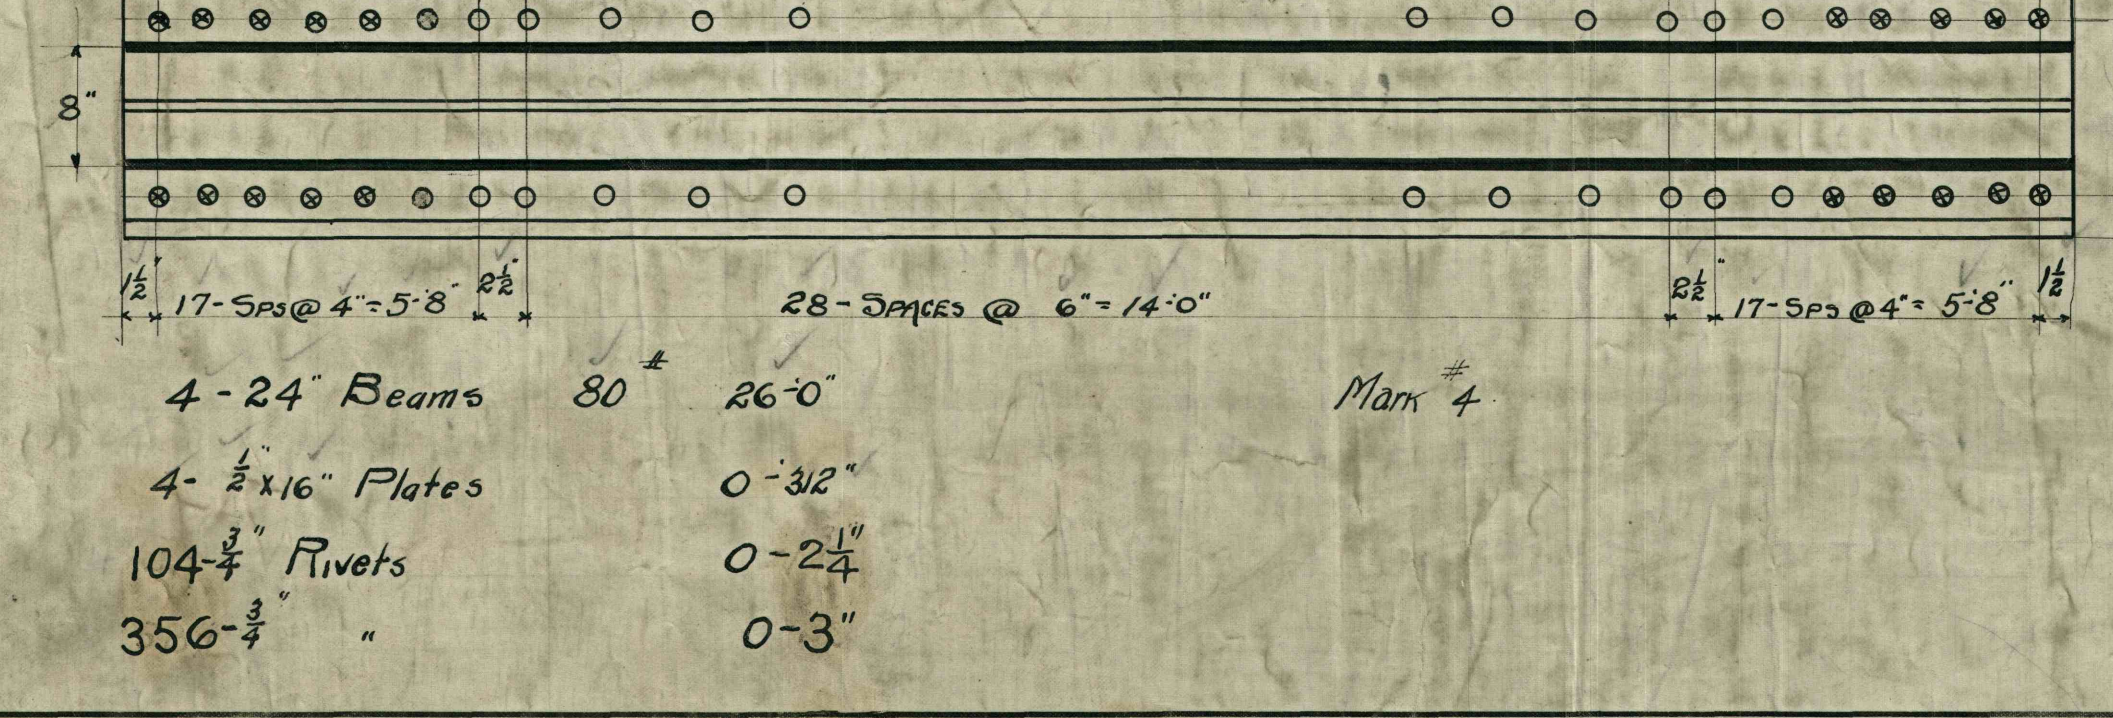 8"
1½" 17-SPS@ 4"=5-8" 2½" 28-SPACES @ 6"=14-0" 2½" 17-SPS @4"= 5-8" 1½
4-24" Beams 80# 26-0" Mark #4
4- ½"x16" Plates 0-3½"
104-¾" Rivets 0-2¼"
356-¾" " 0-3"